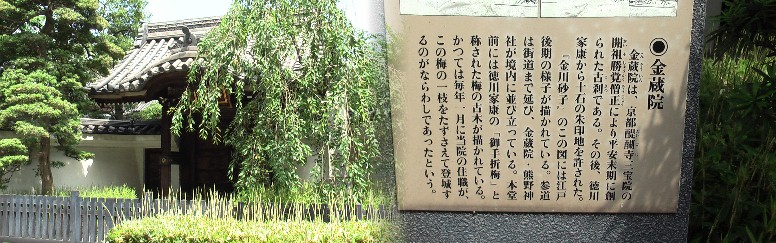 ◉金蔵院
金蔵院は、京都醍醐寺三宝院の
開祖勝覚僧正により平安末期に創
られた古刹である。その後、徳川
家康から十石の朱印地を許された。
『金川砂子』のこの図には江戸
後期の様子が描かれている。参道
は街道まで延び、金蔵院・熊野神
社が境内に並び立っている。本堂
前には徳川家康の「御手折梅」と
称された梅の古木が描かれている。
かつては毎年一月に当院の住職が、
この梅の一枝をたずさえて登城す
るのがならわしであったという。